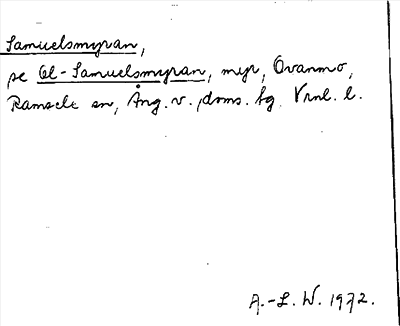 Samuelsmyran,
se Ol-Samuelsmyran, myr, Ovanmo,
Ramsele sn, Ång. v. doms. sg. Vnl. l.
A.-L. W. 1972.